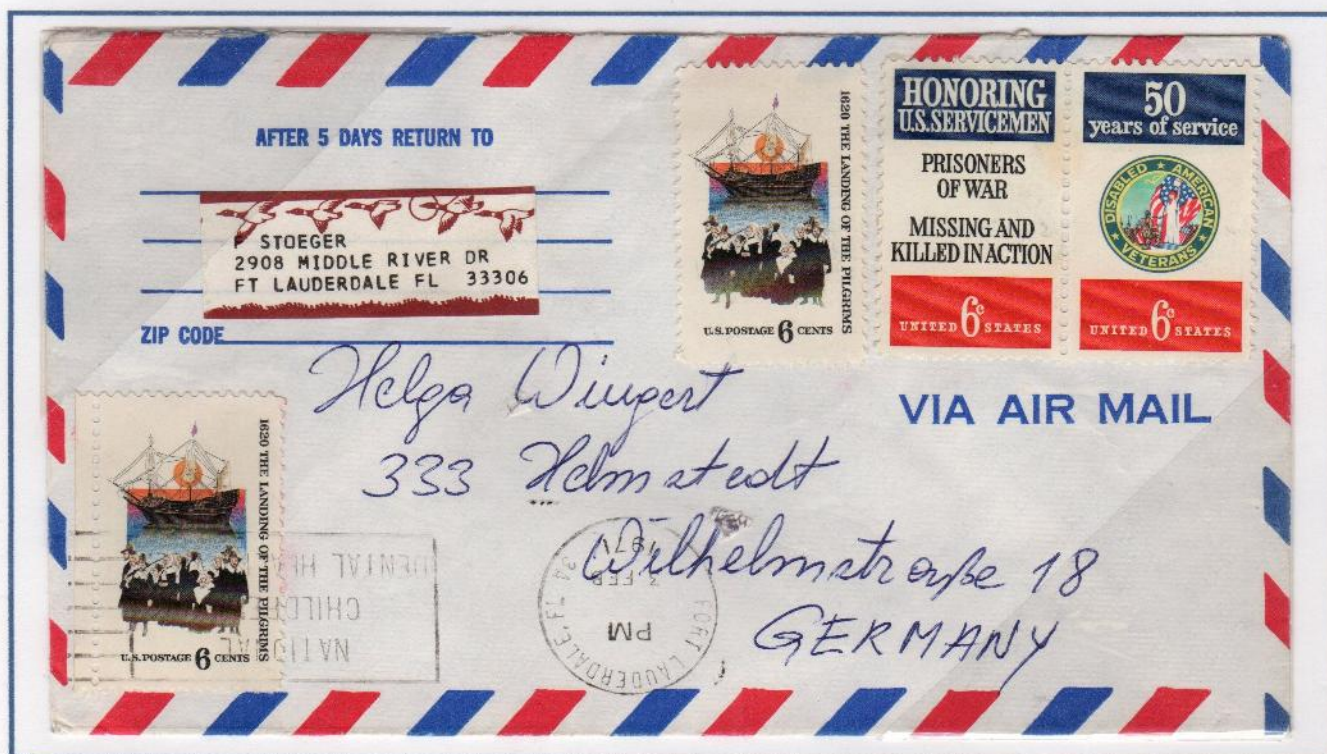 AFTER 5 DAYS RETURN TO
F STOEGER
2908 MIDDLE RIVER DR
FT LAUDERDALE FL 33306
ZIP CODE
1620 THE LANDING OF THE PILGRIMS
U.S. POSTAGE 6 CENTS
HONORING
U.S. SERVICEMEN
PRISONERS
OF WAR
MISSING AND
KILLED IN ACTION
UNITED 6c STATES
50
years of service
DISABLED AMERICAN
VETERANS
UNITED 6c STATES
VIA AIR MAIL
Helga Wingert
333 Helmstedt
Wilhelmstraße 18
GERMANY
1620 THE LANDING OF THE PILGRIMS
U.S. POSTAGE 6 CENTS
FORT LAUDERDALE, FL
PM
3 FEB
1971
DENTAL